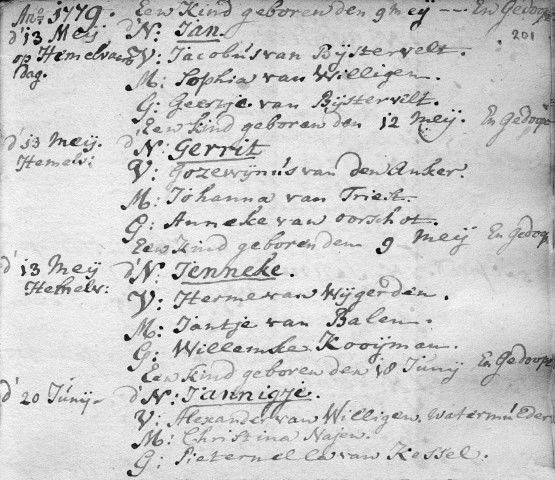 Ano 1779. Een Kind geboren den 9 meij --- En Gedoopt
d' 13 Meij d' N: Jan. 201
op Hemelvaarts V: Jacobus van Bijstervelt.
dag. M: Sophia van Willigen.
G: Geertje van Bijstervelt.
Een kind geboren den 12 meij. En Gedoopt
d' 13 meij. d' N: Gerrit
Hemelv: V: Gozewijnus van den Anker.
M: Johanna van Triest.
G: Anneke van oorschot.
Een kind geboren den 9 meij En Gedoopt
d' 13 meij d' N: Jenneke.
Hemelv: V: Herme van Wijgerden.
M: Jantje van Balen.
G: Willemke Kooijman.
Een kind geboren den 18 Junij En Gedoopt
d' 20 Junij- d' N: Jannigje.
V: Alexander van Willigen, Watermulder
M: Christina Najen.
G: Pieternella van Kessel.